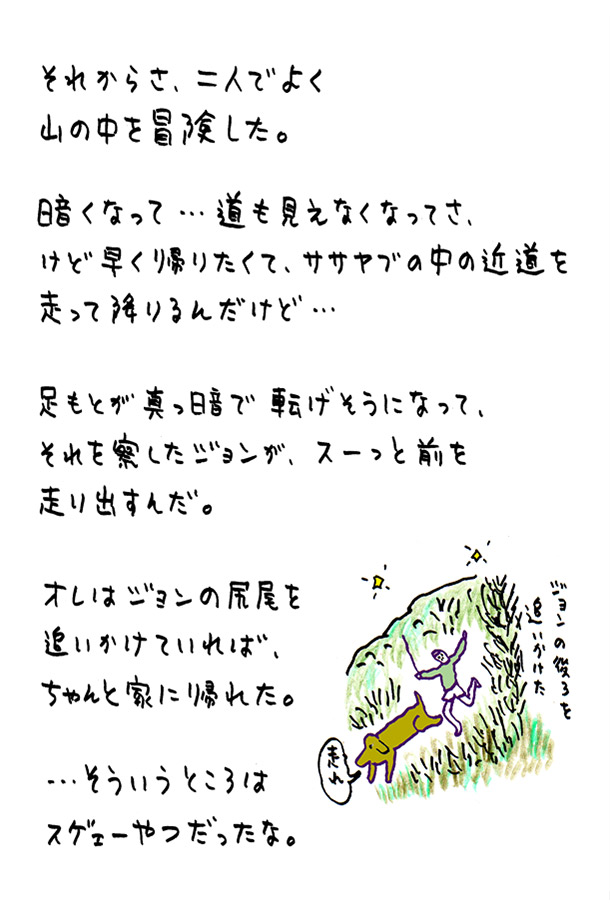 それからさ、二人でよく
山の中を冒険した。
暗くなって…道も見えなくなってさ、
けど早く帰りたくて、ササヤブの中の近道を
走って降りるんだけど…
足もとが真っ暗で転げそうになって、
それを察したジョンが、スーっと前を
走り出すんだ。
オレはジョンの尻尾を
追いかけていれば、
ちゃんと家に帰れた。
…そういうところは
スゲェーやつだったな。
ジョンの後ろを
追いかけた
走れ